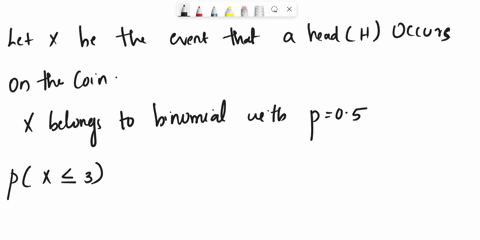 Let X be the event that a head (H) Occurs
On the Coin.
X belongs to binomial with p = 0.5
p( X ≤ 3)